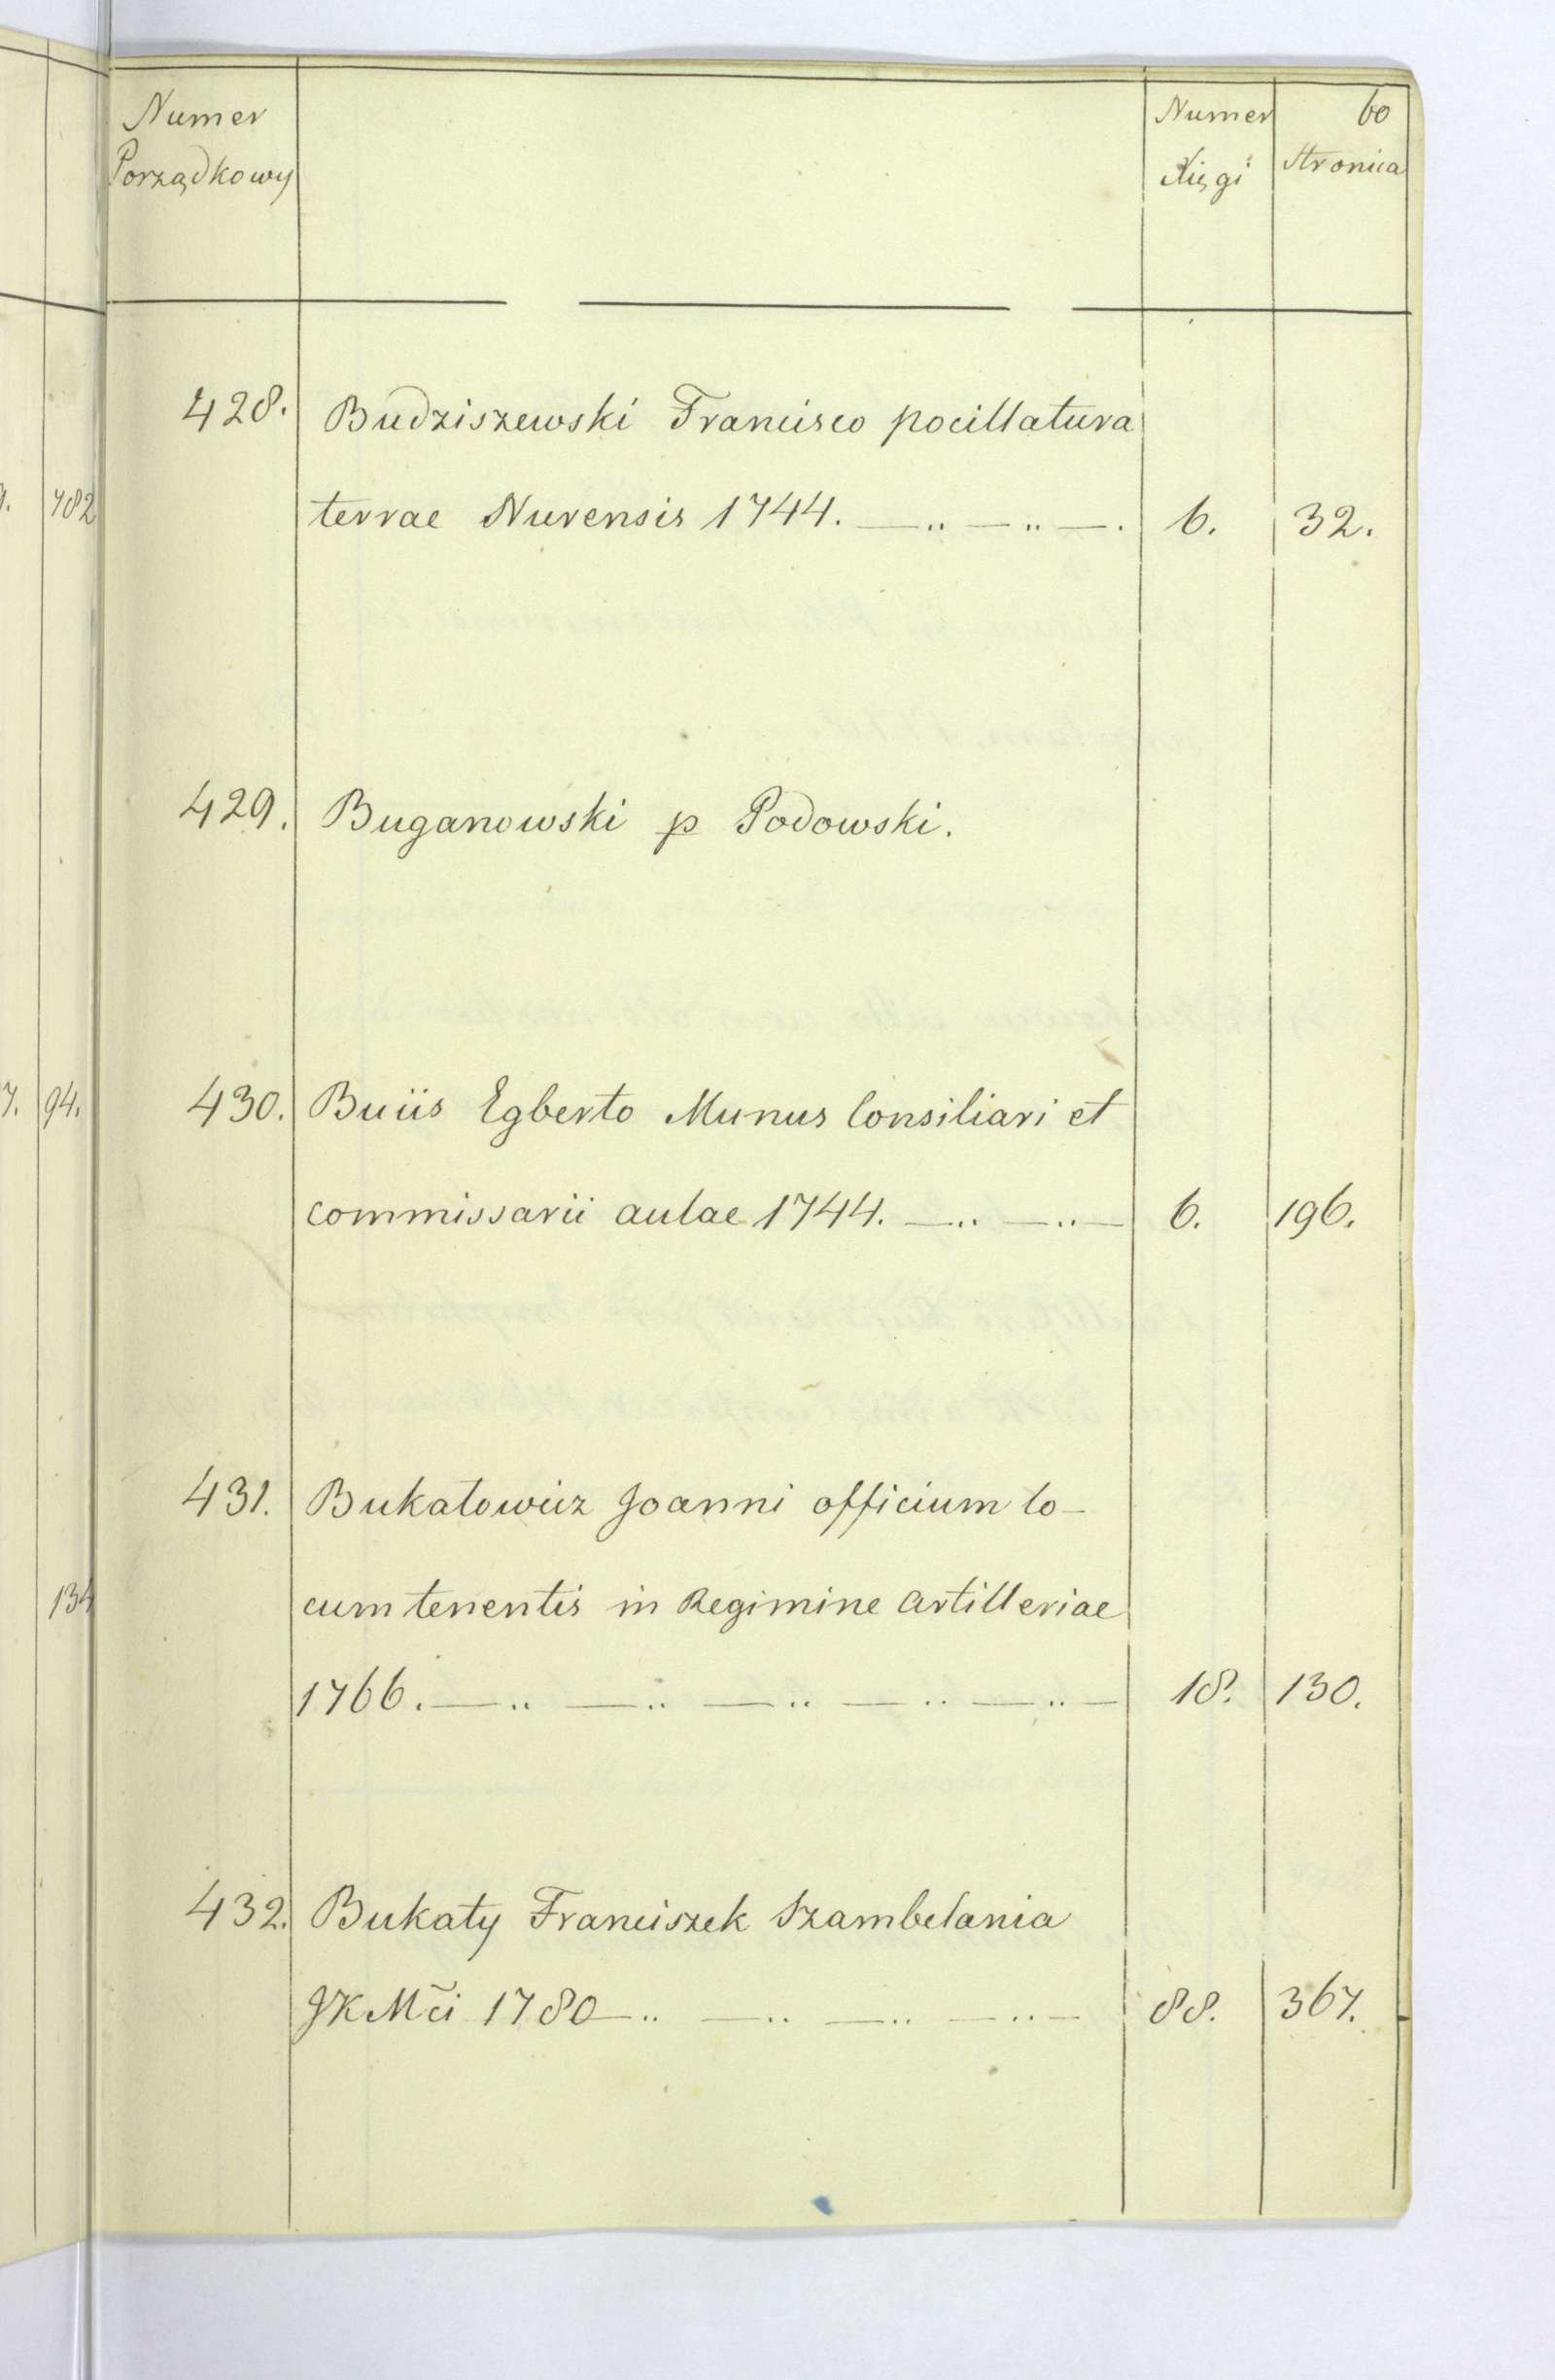 60
Numer Porządkowy
Numer Xięgi
Stronica
482
428. Budziszewski Francisco pocillatura
terrae Nurensis 1744. — .. — .. — . 6. 32.
429. Buganowski p Podowski.
7. 94.
430. Buiis Egberto Munus Consiliari et
commissarii aulae 1744. — .. — .. — 6. 196.
431. Bukatowicz Joanni officium lo-
134
cumtenentis in Regimine Artilleriae
1766. — .. — .. — .. — .. — .. — 18. 130.
432. Bukaty Franciszek Szambelania
JKMči 1780 — .. — .. — .. — .. — 88. 367.